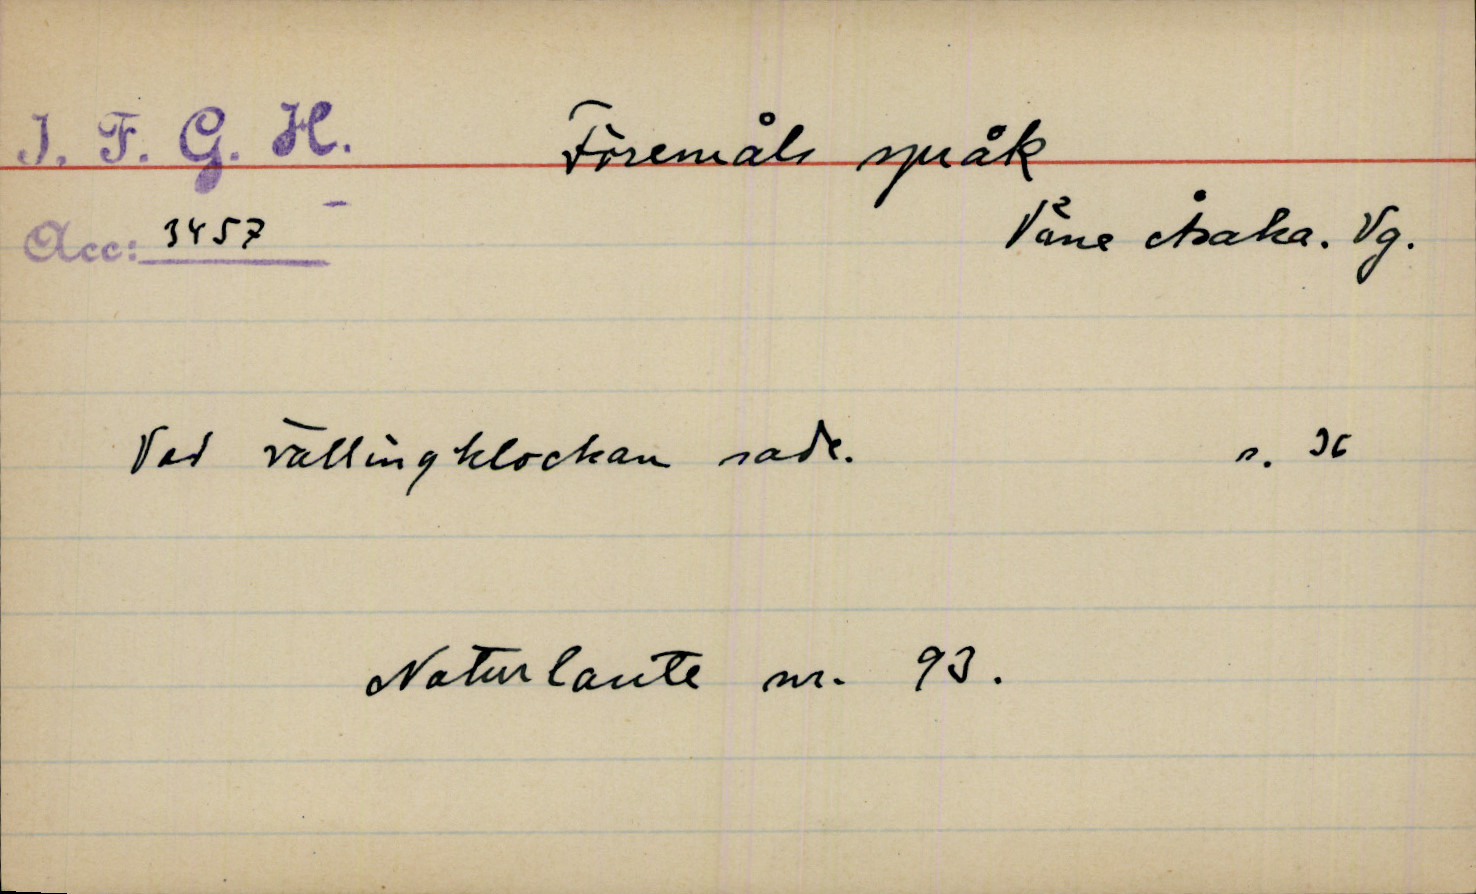 I. F. G. H.
Föremåls språk
Acc: 3457
Våne Åsaka. Vg.
Vad vällingklockan sade. s. 36
Naturlaute nr. 93.